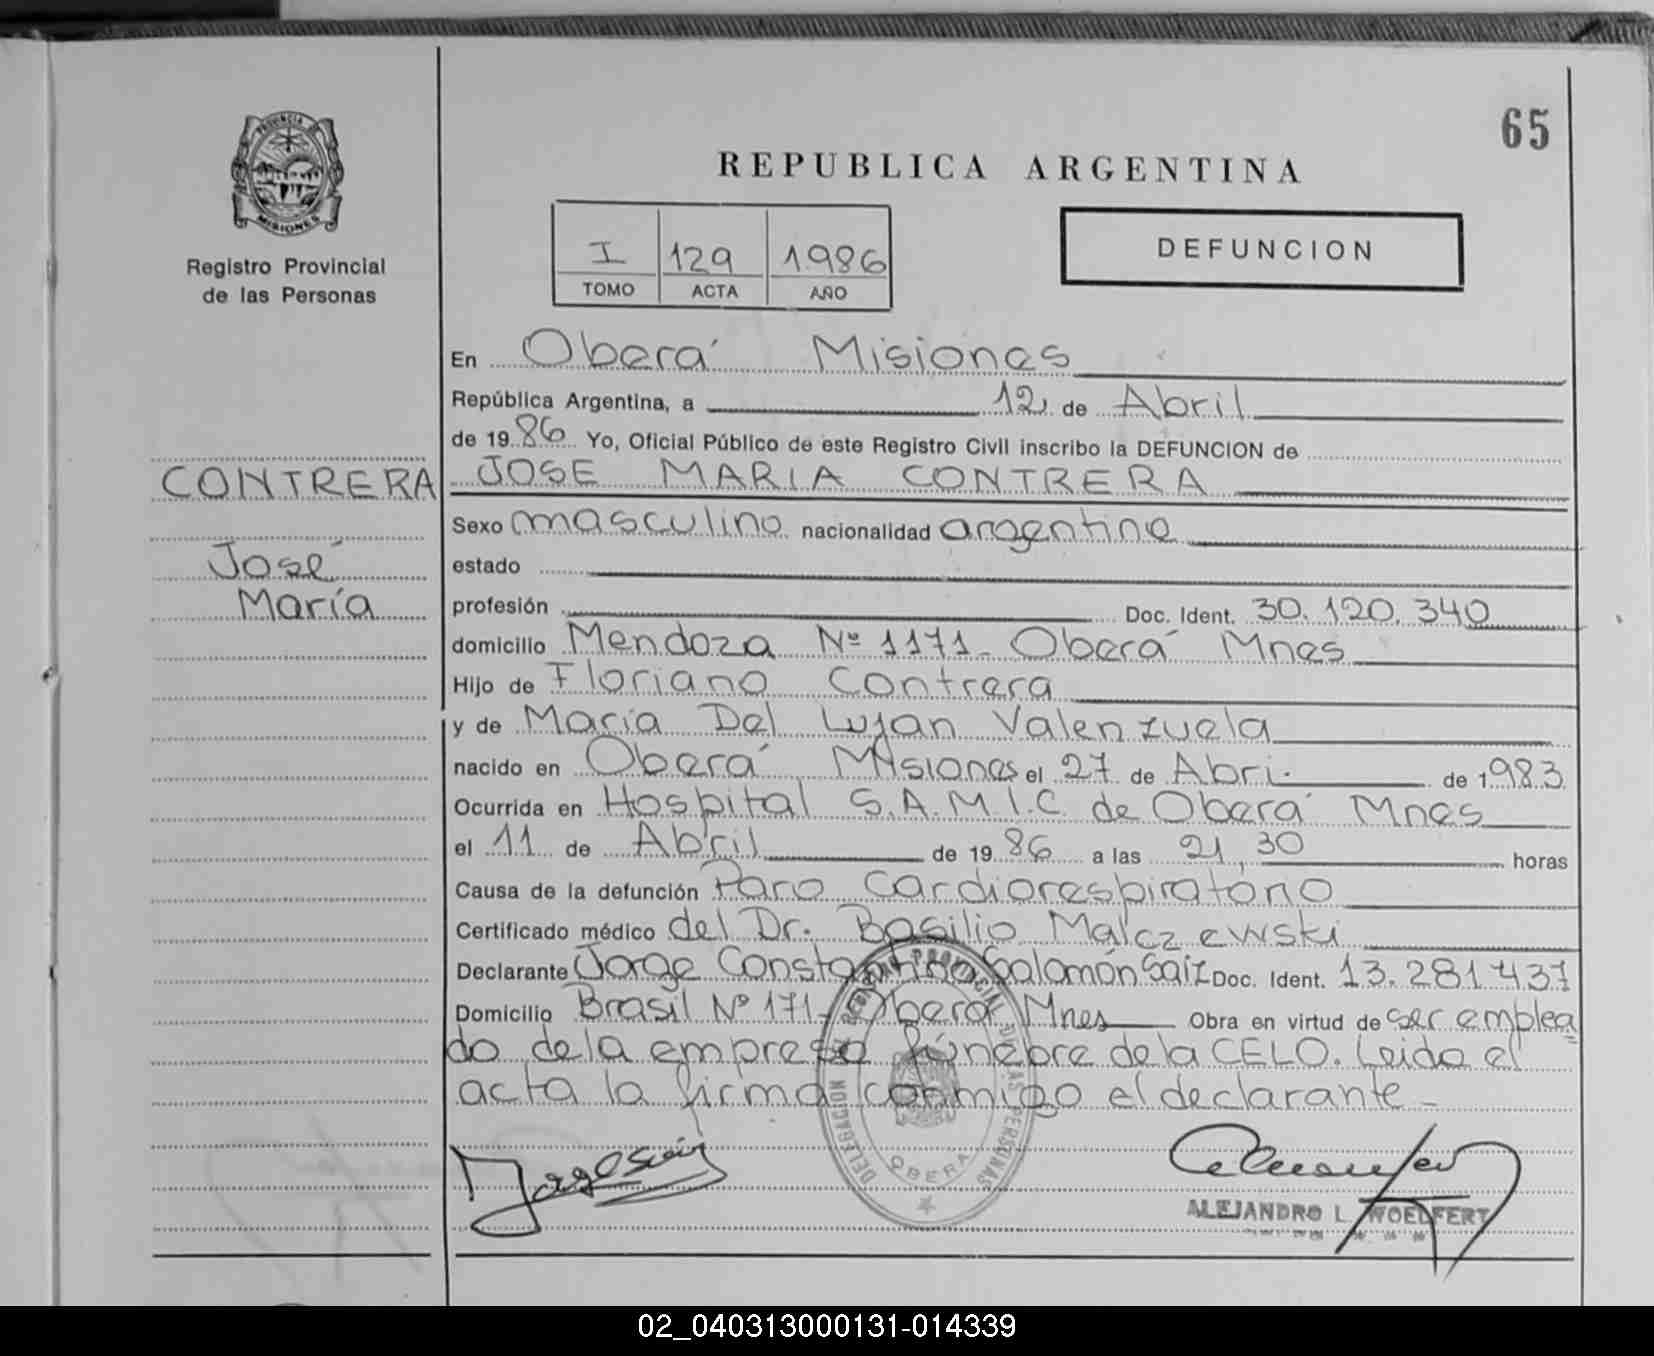 65
PROVINCIA DE
MISIONES
Registro Provincial
de las Personas
REPUBLICA ARGENTINA
I 129 1986
TOMO ACTA AÑO
DEFUNCION
En Oberá Misiones
República Argentina, a 12 de Abril
de 1986 Yo, Oficial Público de este Registro Civil inscribo la DEFUNCION de
CONTRERA
José
María
JOSE MARIA CONTRERA
Sexo masculino nacionalidad argentino
estado
profesión Doc. Ident. 30.120.340
domicilio Mendoza Nº 1171- Oberá Mnes
Hijo de Floriano Contrera
y de María Del Lujan Valenzuela
nacido en Oberá Misiones el 27 de Abri. de 1983
Ocurrida en Hospital S.A.M.I.C. de Oberá Mnes
el 11 de Abril de 1986 a las 21,30 horas
Causa de la defunción Paro Cardiorespiratorio
Certificado médico del Dr. Basilio Malczewski
Declarante Jorge Constantino Salomón Saiz Doc. Ident. 13.281.437
Domicilio Brasil Nº 171- Oberá Mnes Obra en virtud de ser emplea
do de la empresa fúnebre de la CELO. Leida el
acta la firma conmigo el declarante-
DELEGACION REGISTRO PROVINCIAL DE LAS PERSONAS
OBERA
ALEJANDRO L. WOELFERT
02_040313000131-014339